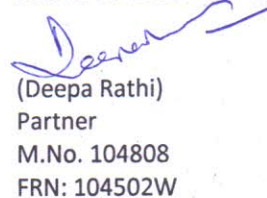 (Deepa Rathi)
Partner
M.No. 104808
FRN: 104502W